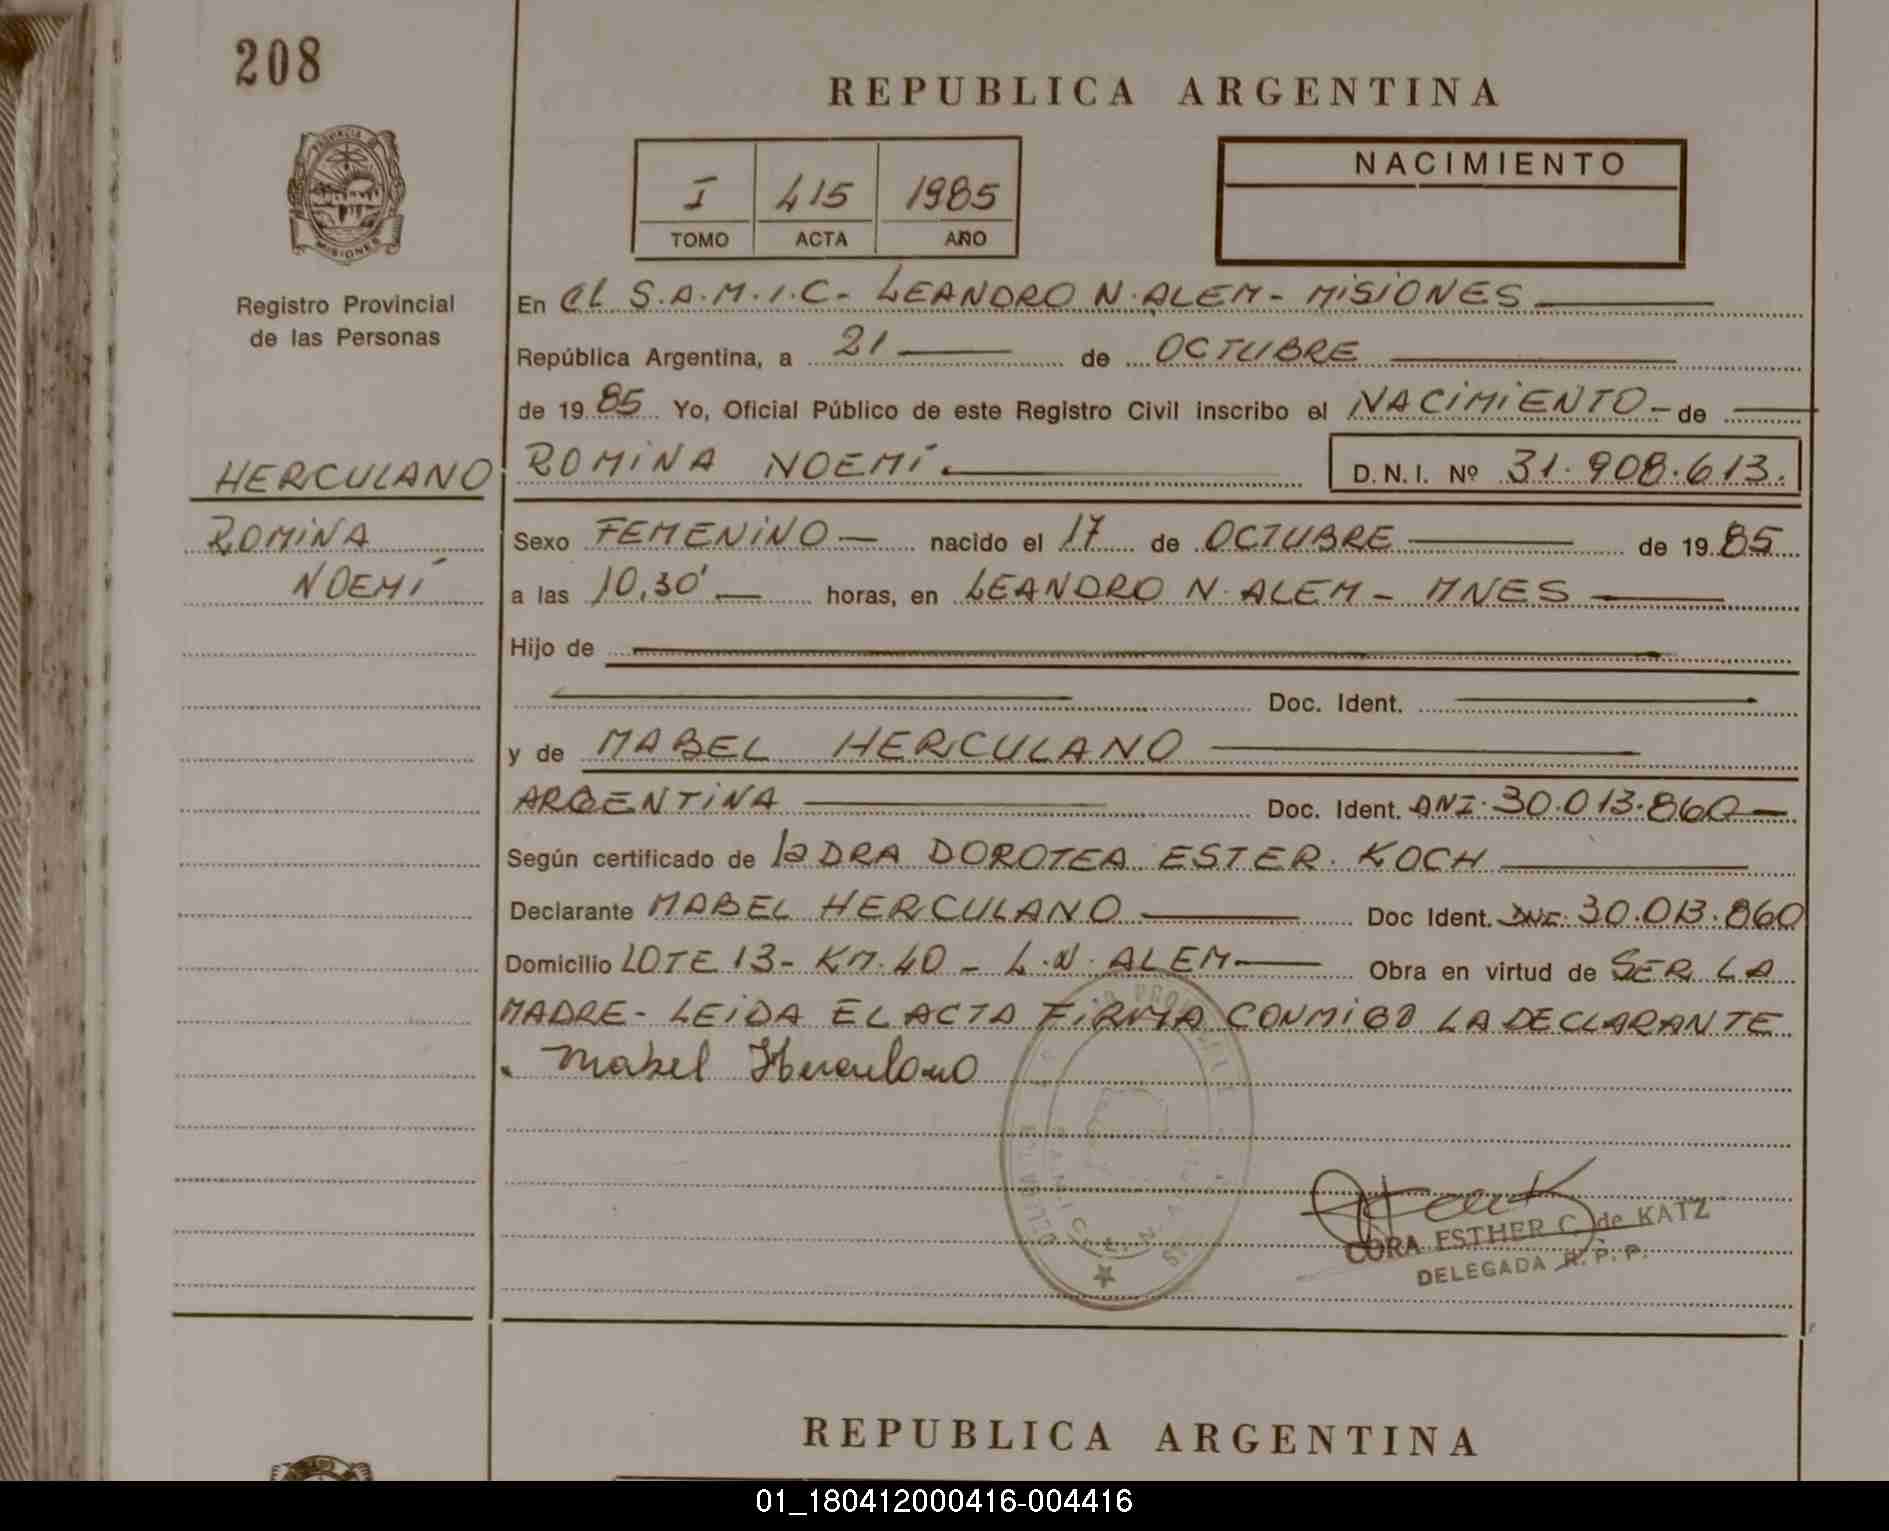 208
REPUBLICA ARGENTINA
PROVINCIA DE
MISIONES
Registro Provincial
de las Personas
I 415 1985
TOMO ACTA AÑO
NACIMIENTO
En el S.A.M.I.C- LEANDRO N. ALEM - MISIONES
República Argentina, a 21 de OCTUBRE
de 19 85 Yo, Oficial Público de este Registro Civil inscribo el NACIMIENTO - de
HERCULANO ROMINA NOEMÍ. D.N.I. Nº 31.908.613.
ROMINA
NOEMÍ
Sexo FEMENINO nacido el 17 de OCTUBRE de 19 85
a las 10,30' horas, en LEANDRO N. ALEM - MNES
Hijo de
Doc. Ident.
y de MABEL HERCULANO
ARGENTINA Doc. Ident. DNI. 30.013.860
Según certificado de la DRA DOROTEA ESTER. KOCH
Declarante MABEL HERCULANO Doc Ident. DNI. 30.013.860
Domicilio LOTE 13 - KM. 40 - L.N. ALEM Obra en virtud de SER LA
MADRE - LEIDA EL ACTA FIRMA CONMIGO LA DECLARANTE
Mabel Herculano
CORA ESTHER C. de KATZ
DELEGADA R. P. P.
REPUBLICA ARGENTINA
01_180412000416-004416